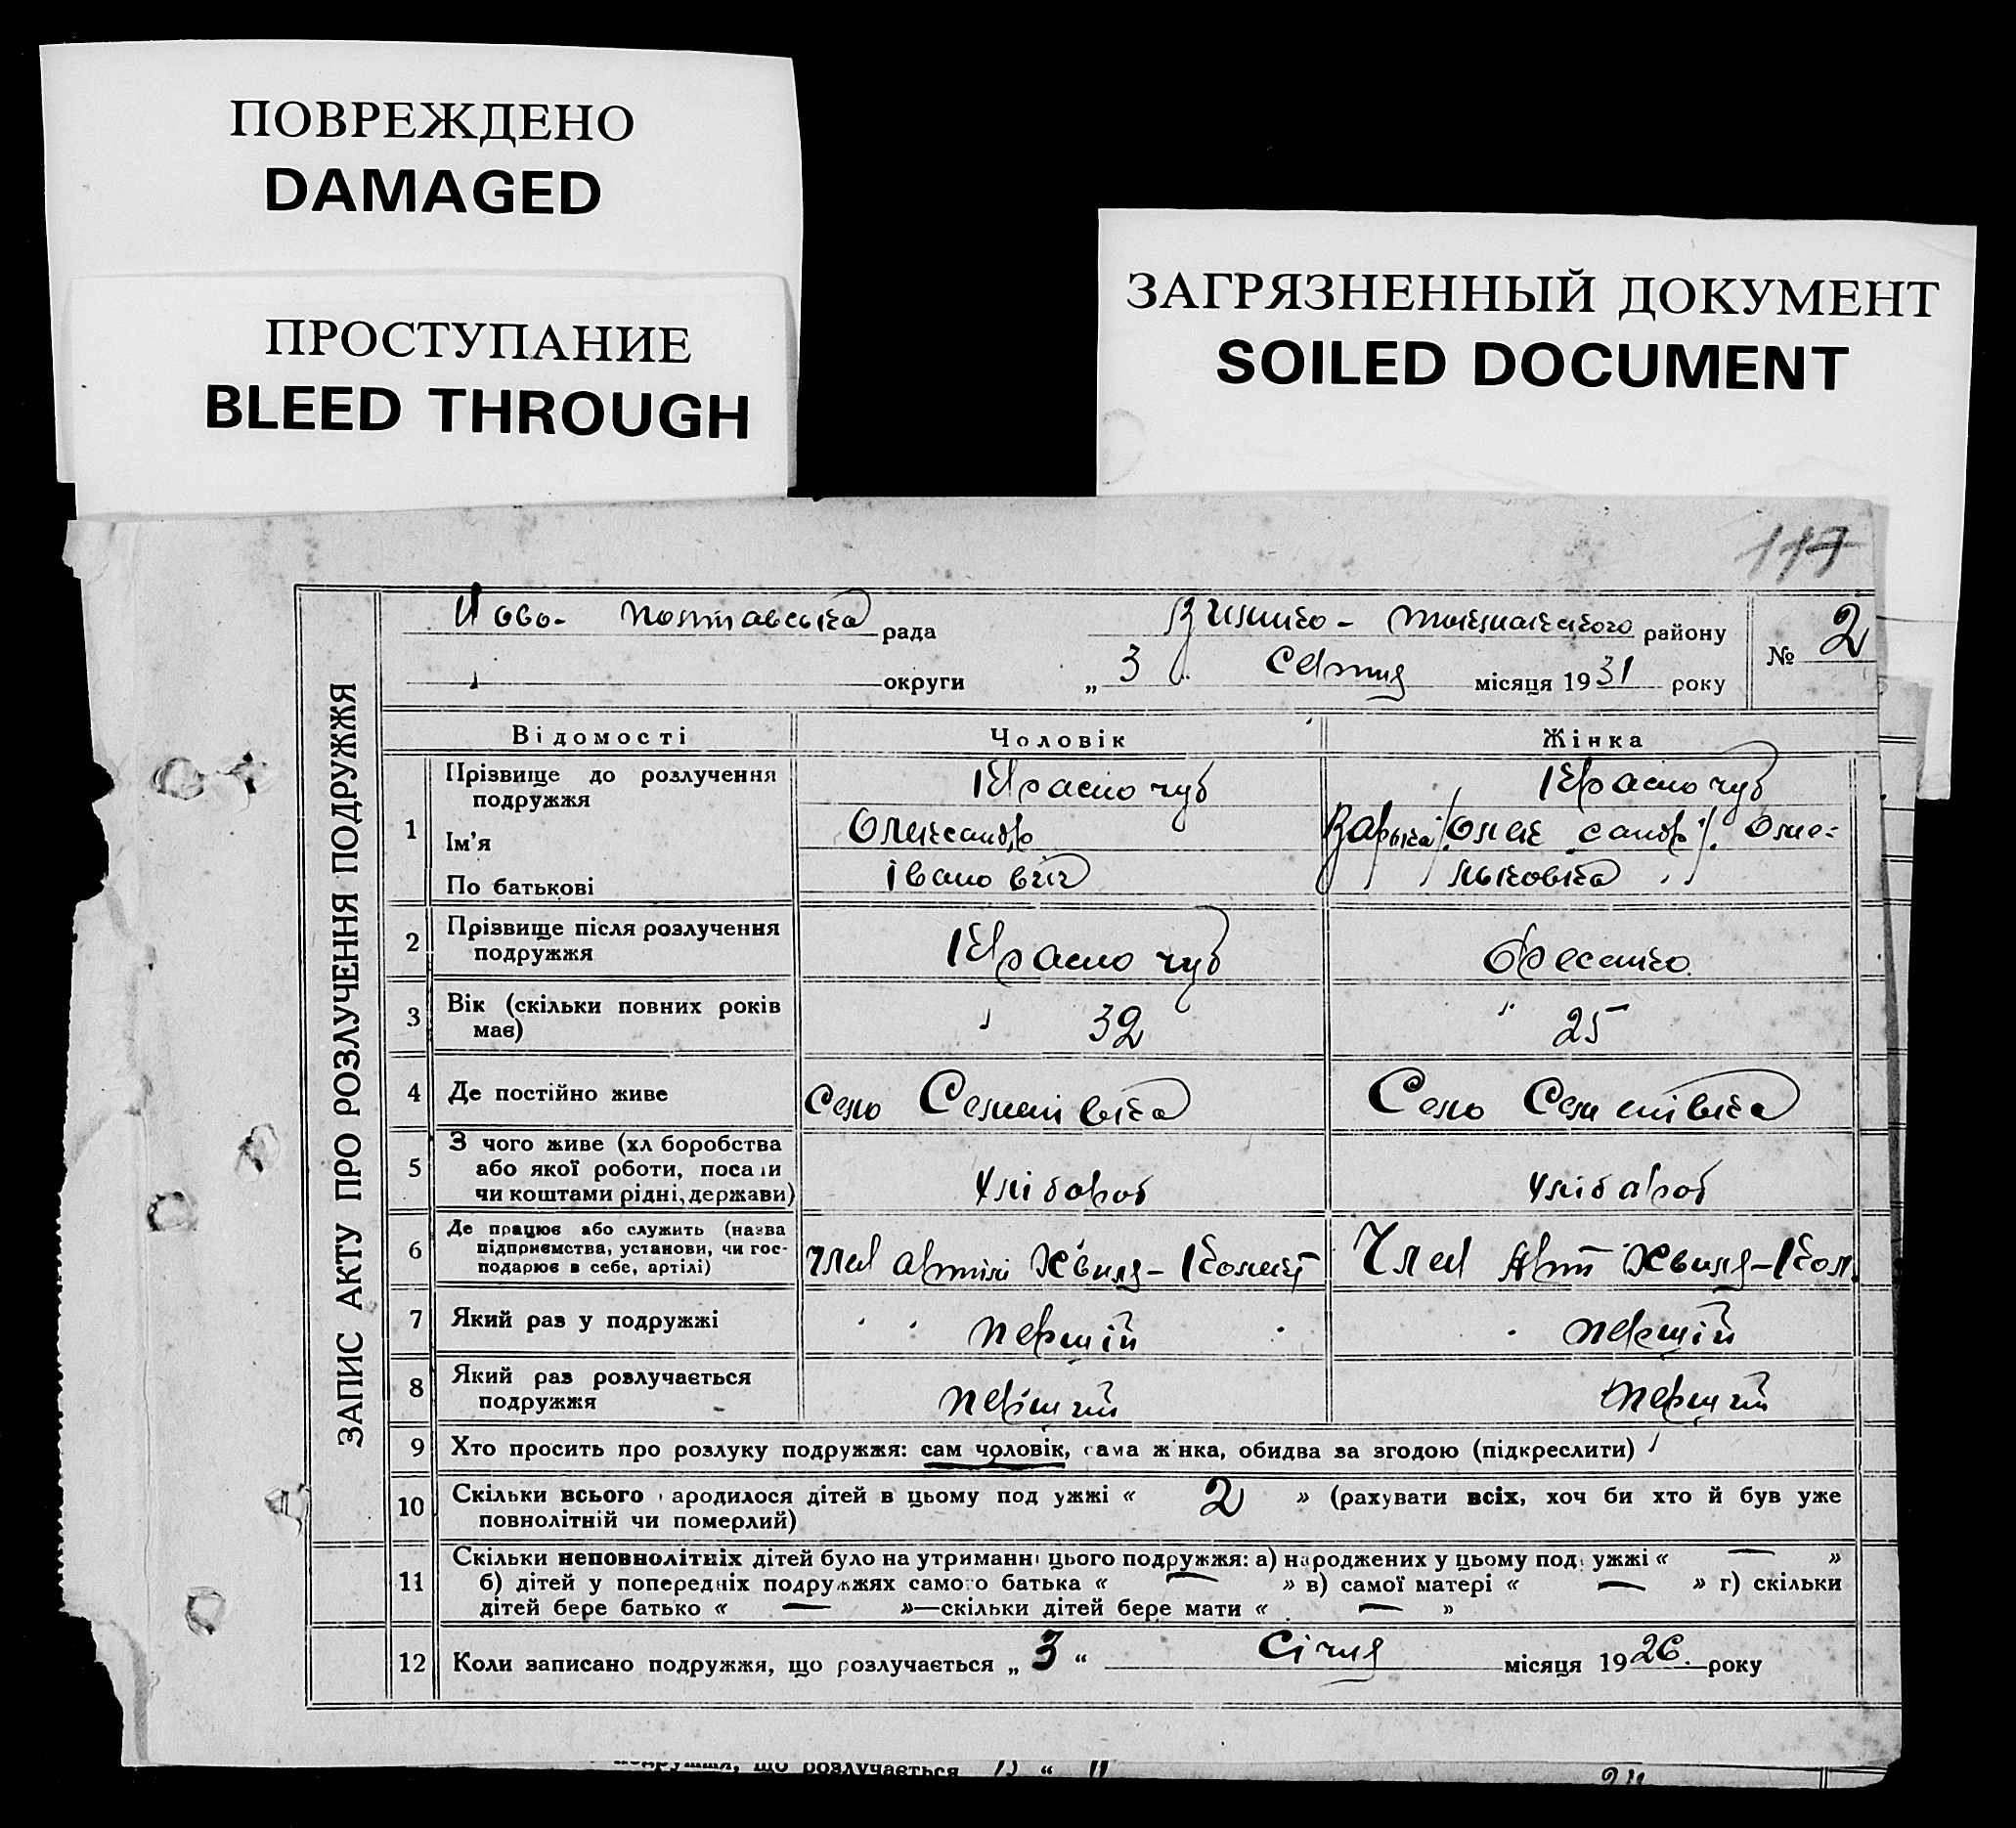 ПОВРЕЖДЕНО
DAMAGED
ПРОСТУПАНИЕ
BLEED THROUGH
ЗАГРЯЗНЕННЫЙ ДОКУМЕНТ
SOILED DOCUMENT
117
ЗАПИС АКТУ ПРО РОЗЛУЧЕННЯ ПОДРУЖЖЯ
Ново- Полтавська рада
району
№ 2
округи „ 3 Серпня місяця 1931 року
Відомості Чоловік Жінка
1 Прізвище до розлучення подружжя Красно чуб Красно чуб
Ім'я Олександр Варька /Олек сандр/. Оме-
По батькові Івано вич льковна
2 Прізвище після розлучення подружжя Красно чуб Фесенко
3 Вік (скільки повних років має) 32 25
4 Де постійно живе Село Семенівка Село Семенівка
5 З чого живе (хл боробства або якої роботи, поса и чи коштами рідні, держави) хлібороб хлібороб
6 Де працює або служить (назва підприємства, установи, чи господарює в себе, артілі) член артілі Хвиля- Член Арт Хвиля-
7 Який раз у подружжі першій першій
8 Який раз розлучається подружжя перший перший
9 Хто просить про розлуку подружжя: сам чоловік, сама ж нка, обидва за згодою (підкреслити)
10 Скільки всього ародилося дітей в цьому под ужжі « 2 » (рахувати всіх, хоч би хто й був уже
повнолітній чи померлий)
11 Скільки неповнолітніх дітей було на утриманні цього подружжя: а) народжених у цьому под ужжі « — »
б) дітей у попередніх подружжях самого батька « — » в) самої матері « — » г) скільки
дітей бере батько « — »—скільки дітей бере мати « — »
12 Коли записано подружжя, що розлучається „ 3 “ Січня місяця 1926. року
подружжя, що розлучається